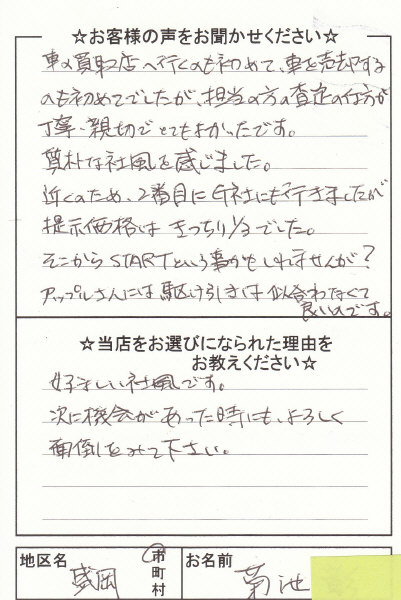 ☆お客様の声をお聞かせください☆
車の買取店へ行くのも初めて、車を売却する
のも初めてでしたが、担当の方の査定の仕方が
丁寧・親切でとてもよかったです。
質朴な社風を感じました。
近くのため、2番目にG社にも行きましたが
提示価格は きっちり1/3でした。
そこからSTARTという事かもしれませんが?
アップルさんには駆け引きは似合わなくて
良いのです。
☆当店をお選びになられた理由を
お教えください☆
好ましい社風です。
次に機会があった時にも、よろしく
面倒をみて下さい。
地区名 盛岡 市町村 お名前 菊池